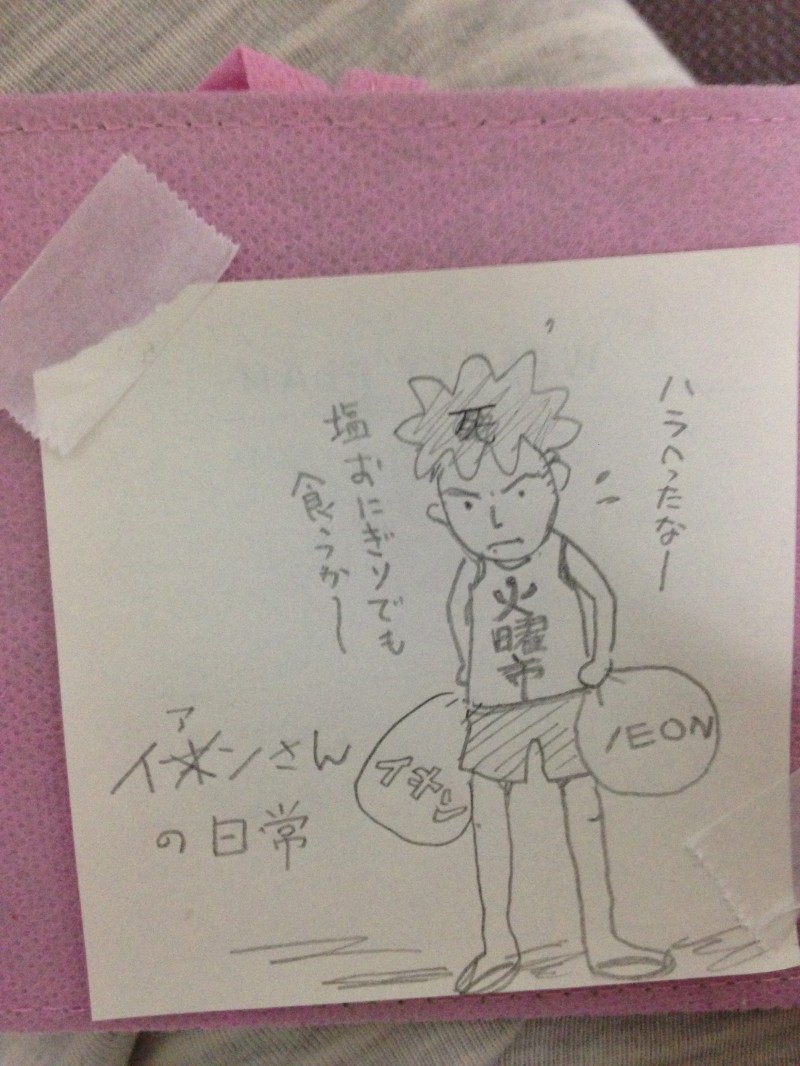 ハラへったなー
塩おにぎりでも
食うかー
死
火
曜
市
イオン
/EON
ア
イオンさん
の日常